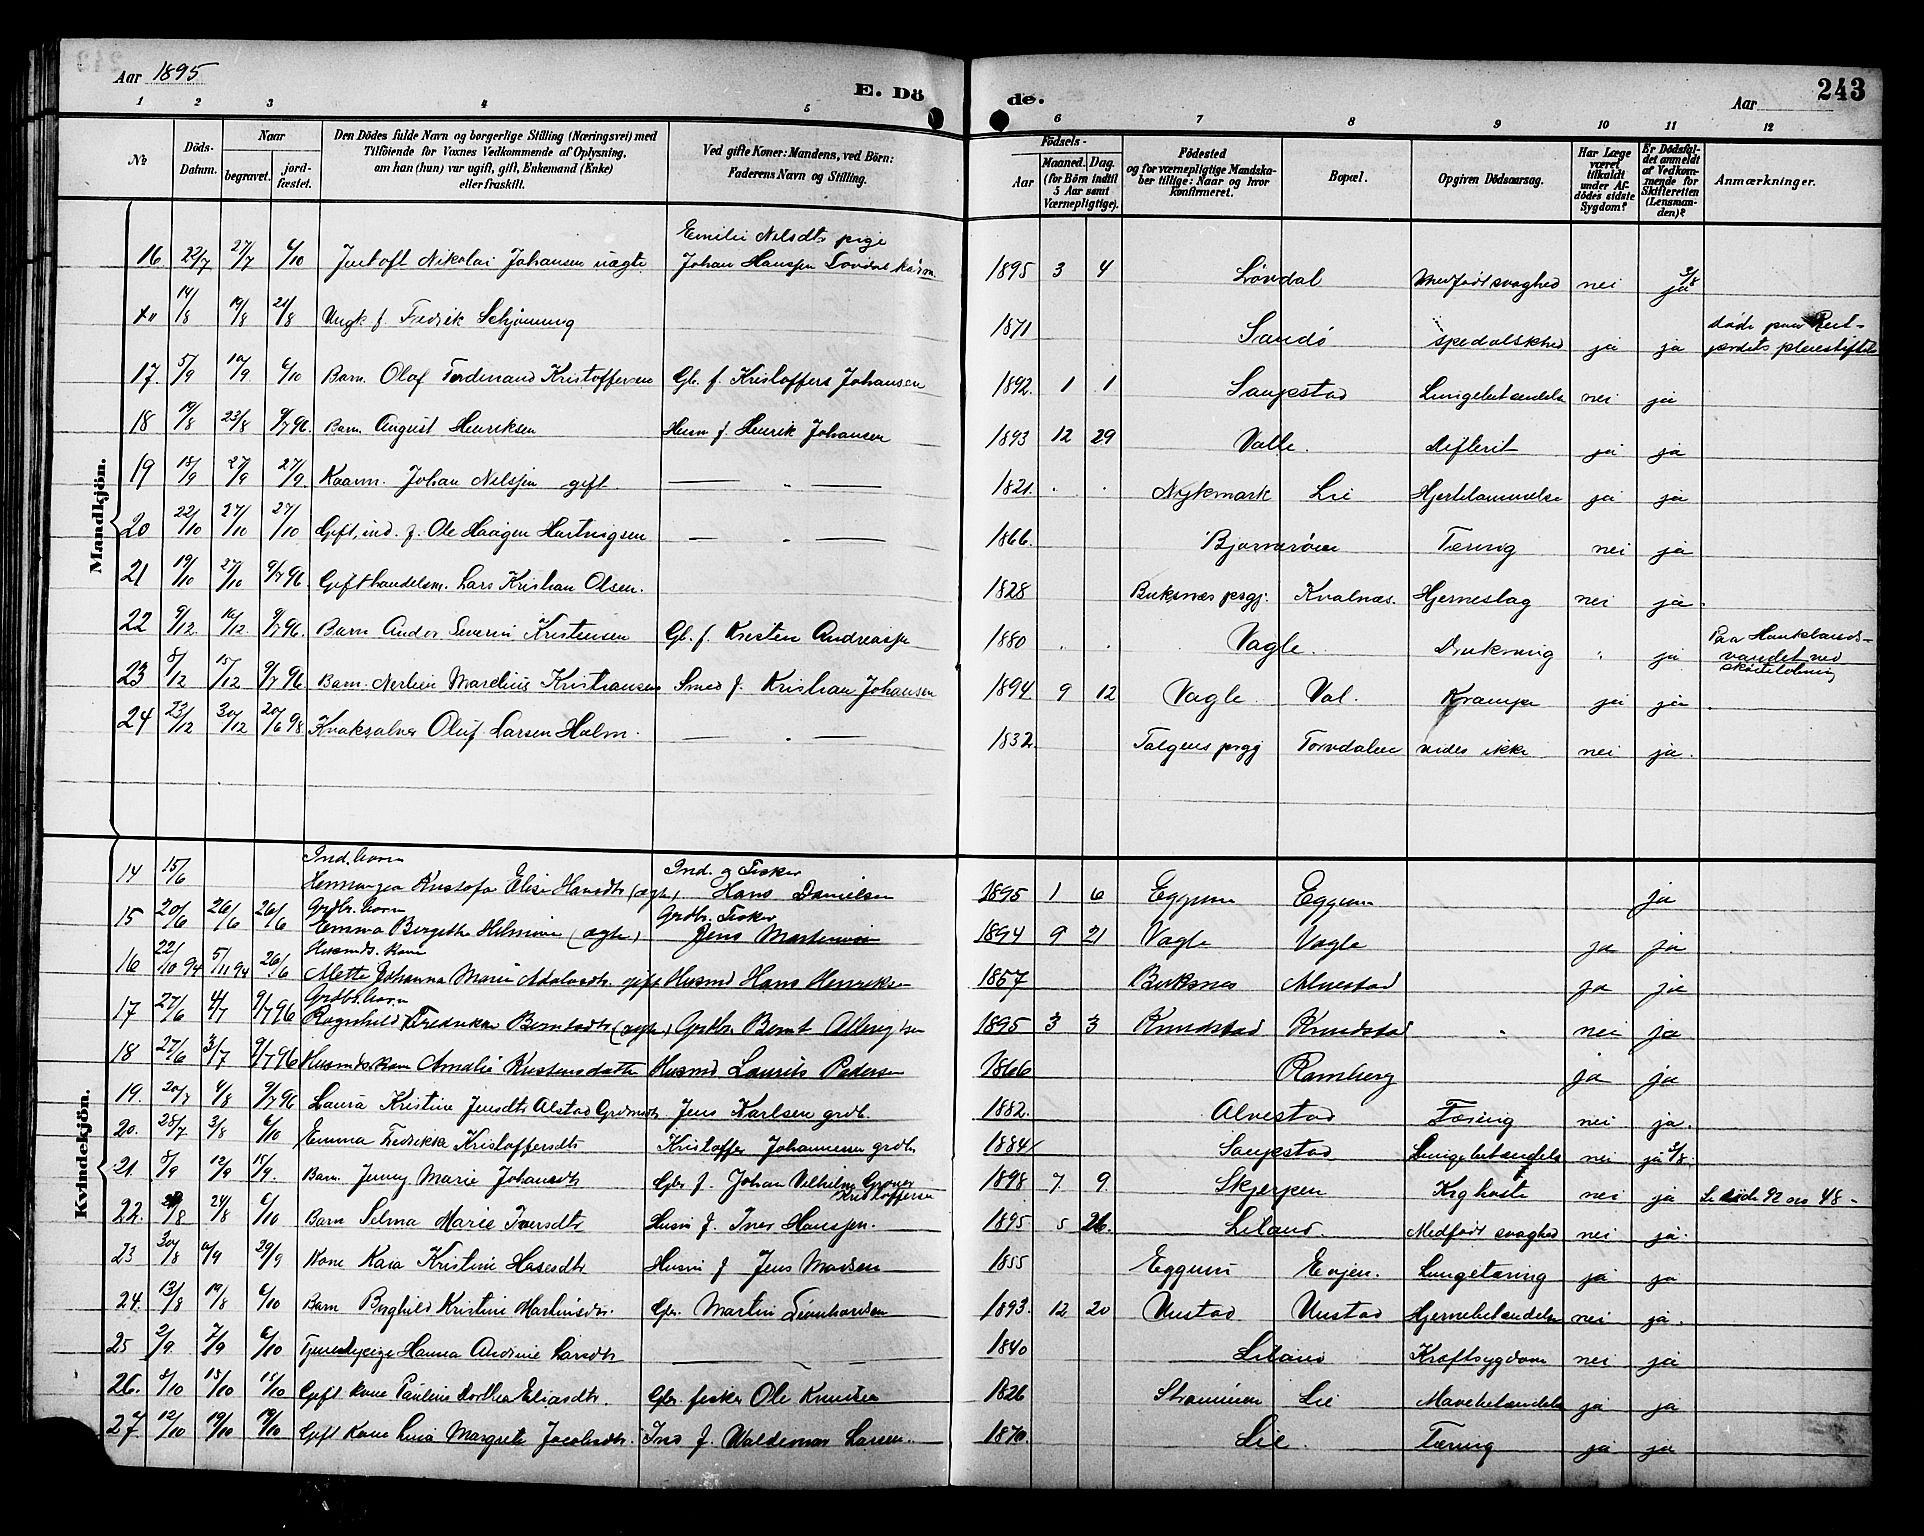 Aar 1895
E. Dö
de.
Aar
243
1 2 3 4 5 6 7 8 9 10 11 12
№
Döds-Datum.
Naar
begravet.
jord-fæstet.
Den Dödes fulde Navn og borgerlige Stilling (Næringsvei) med
Tilföiende for Voxnes Vedkommende af Oplysning,
om han (hun) var ugift, gift, Enkemand (Enke)
eller fraskilt.
Ved gifte Koner: Mandens, ved Börn:
Faderens Navn og Stilling.
Födsels-
Aar
Maaned. Dag.
(for Börn indtil
5 Aar samt
Værnepligtige).
Födested
og for værnepligtige Mandska-
ber tillige: Naar og hvor
konfirmeret.
Bopæl.
Opgiven Dödsaarsag.
Har Læge
været
tilkaldt
under Af-
dödes sidste
Sygdom?
Er Dödsfal-
det anmeldt
af Vedkom-
mende for
Skifteretten
(Lensman-
den)?
Anmærkninger.
Mandkjön.
Emilie Nilsdtr pige
16 22/7 27/7 6/10 Nikolai Johansen uægte Johan Hanssen 1895 3 4 Lövdal Medfödt svaghed nei 2/8 ja
14/8 19/8 21/8 Ungk f Fredrik Schjönning 1871 Sandö spedalskhed ja ja döde paa
17. 5/9 10/9 6/10 Barn. Olaf Ferdinand Kristoffersen Gb. f. Kristoffers Johansen 1892. 1 1 Saupstad Lungebetændelse nei ja
18 19/8 23/8 9/7 96. Barn. August Henriksen Husm f Henrik Johansen 1893 12 29 Valle. difterit ja ja
19 18/9 27/9 27/9 Kaarm. Johan Nilssen gift — " — 1821. . . Nykmark Lie Hjertelammelse ja ja
20 22/10 27/10 27/10 Gift, ind. f. Ole Haagen Hartvigsen — " — 1866. Tæring nei ja
21 19/10 27/10 9/7 96. Gift handelsm. Lars Kristian Olsen. 1828 Buksnæs prgj. Kvalnæs. Hjerneslag nei ja.
22 9/12. 16/12 9/7 96. Barn Andor Severin Kristensen Gb. f. Kristen Andreass 1880 . . Vagle. Drukning " ja Paa Hauklands-
vandet ved
skøiteløbning
23 8/12 15/12 9/7 96 Barn. Marelius Kristiansen Smed f. Kristian Johansen 1894 9 12 Vagle. Val. Krampe ja ja
24 23/12 30/12 20/6 98 Kvaksalver Oluf Larsen Holm. — " — 1832. Tolgens prgj Torvdalen vides ikke nei ja.
Kvindekjön.
Ind. barn Ind. og Fisker
14 15/6 Kristofa Elise Hansdtr (ægte) Hans Danielsen 1895 1 6 Eggum Eggum ja
Grdbr. barn Grdbr. Fisker
15 20/6 26/6 26/6 Emma Bergitte Helmine (ægte) Jens 1894 9 21 Vagle Vagle ja ja
Husmds. kone
16 22/10 94 5/11 94 26/6 Mette Johanna Marie gift Husmd Hans Henriksen 1857 Buksnes Alvestad ja ja
Grdbr. barn
17 27/6 4/7 9/7 96 Ragnhild Fredrikke Berntsdtr (ægte) Grdbr Bernt 1895 3 3 Knudstad Knudstad " nei ja
18 27/6 3/7 9/7 96 Husmds. kone Amalie Kristensdatter Husmd Laurits Pedersen 1866 Ramberg ja ja
19. 20/7 4/8 9/7 96 Laura Kristine Jensdtr Alstad Grdmdtr Jens Karlsen grdb. 1882. Alvestad Tæring nei ja.
20. 28/7 3/8 6/10 Emma Fredrikka Kristoffersdtr Kristoffer Johannesen grdbr 1884 Saupstad Lungebetændelse nei ja 2/8.
21. 8/9 12/9 15/9. Barn. Jenny Marie Johansdtr Gbr f. Johan Vilhelm Gröner
Kristoffersen 1898 7 9 Skjerpen Kighoste nei ja Se döde 92 no 48 -
22. 24/8 6/10 Barn Selma Marie Iversdtr Husm f. Iver Hanssen. 1895 5 26. Liland. Medfödt svaghed nei ja.
23 30/8 29/9 Kone Kaia Kristine Husm f Jens Madsen 1855 Eggum Evjen. Lungetæring ja ja
24. 13/8 19/8 6/10 Barn Borghild Kristine Martinsdtr. Gbr. Martin Leonhardsen 1893. 12 20 Unstad Unstad Hjernebetændelse nei ja.
25 2/9. 7/9 6/10 Tjenestepige Hanna Andrine Larsdtr — 1840 Liland Kræftsygdom nei ja
26. 8/10 15/10 15/10 Gift kone Pauline Dorthea Eliasdtr. Gbr. fisker Ole Knudsen 1826 Straumen Lie Mavebetændelse ja ja
27. 12/10 19/10 19/10 Gift Kone Lina Margrete Jacobsdtr. Ind f. Waldemar Larsen. 1870. Lie. Tæring ja ja